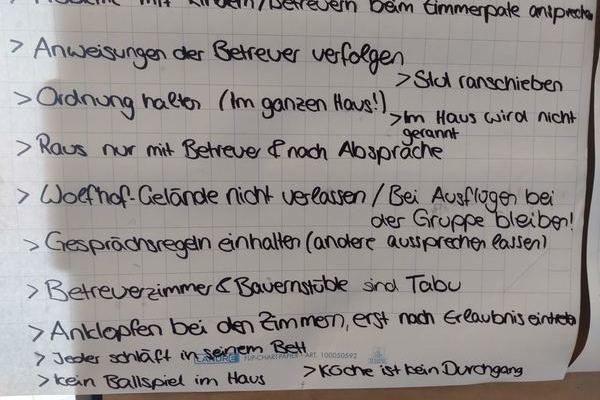 Probleme mit Kindern/Betreuern beim Zimmerpate ansprechen
> Anweisungen der Betreuer verfolgen
> Stul ranschieben
> Ordnung halten (Im ganzen Haus!)
> Im Haus wird nicht
gerannt
> Raus nur mit Betreuer & nach Absprache
> Wolfhof-Gelände nicht verlassen / Bei Ausflügen bei
der Gruppe bleiben!
> Gesprächsregeln einhalten (andere aussprechen lassen)
> Betreuerzimmer & Bauernstüble sind Tabu
> Anklopfen bei den Zimmern, erst nach Erlaubnis eintreten
> Jeder schläft in seinem Bett
LANDRÉ FLIP-CHART-PAPIER • ART. 100050592
> kein Ballspiel im Haus
> Küche ist kein Durchgang